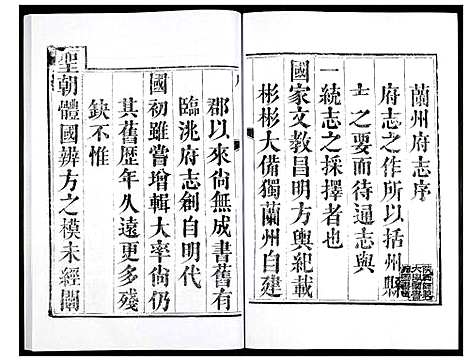 蘭州府志序
府志之作所以括州縣
士之要而待通志與
一統志之採擇者也
國家文教昌明方輿紀載
彬彬大備獨蘭州自建
郡以來尚無成書舊有
臨洮府志創自明代
國初雖嘗增輯大率尚仍
其舊歷年久遠更多殘
缺不惟
聖朝體國辨方之模未經闡